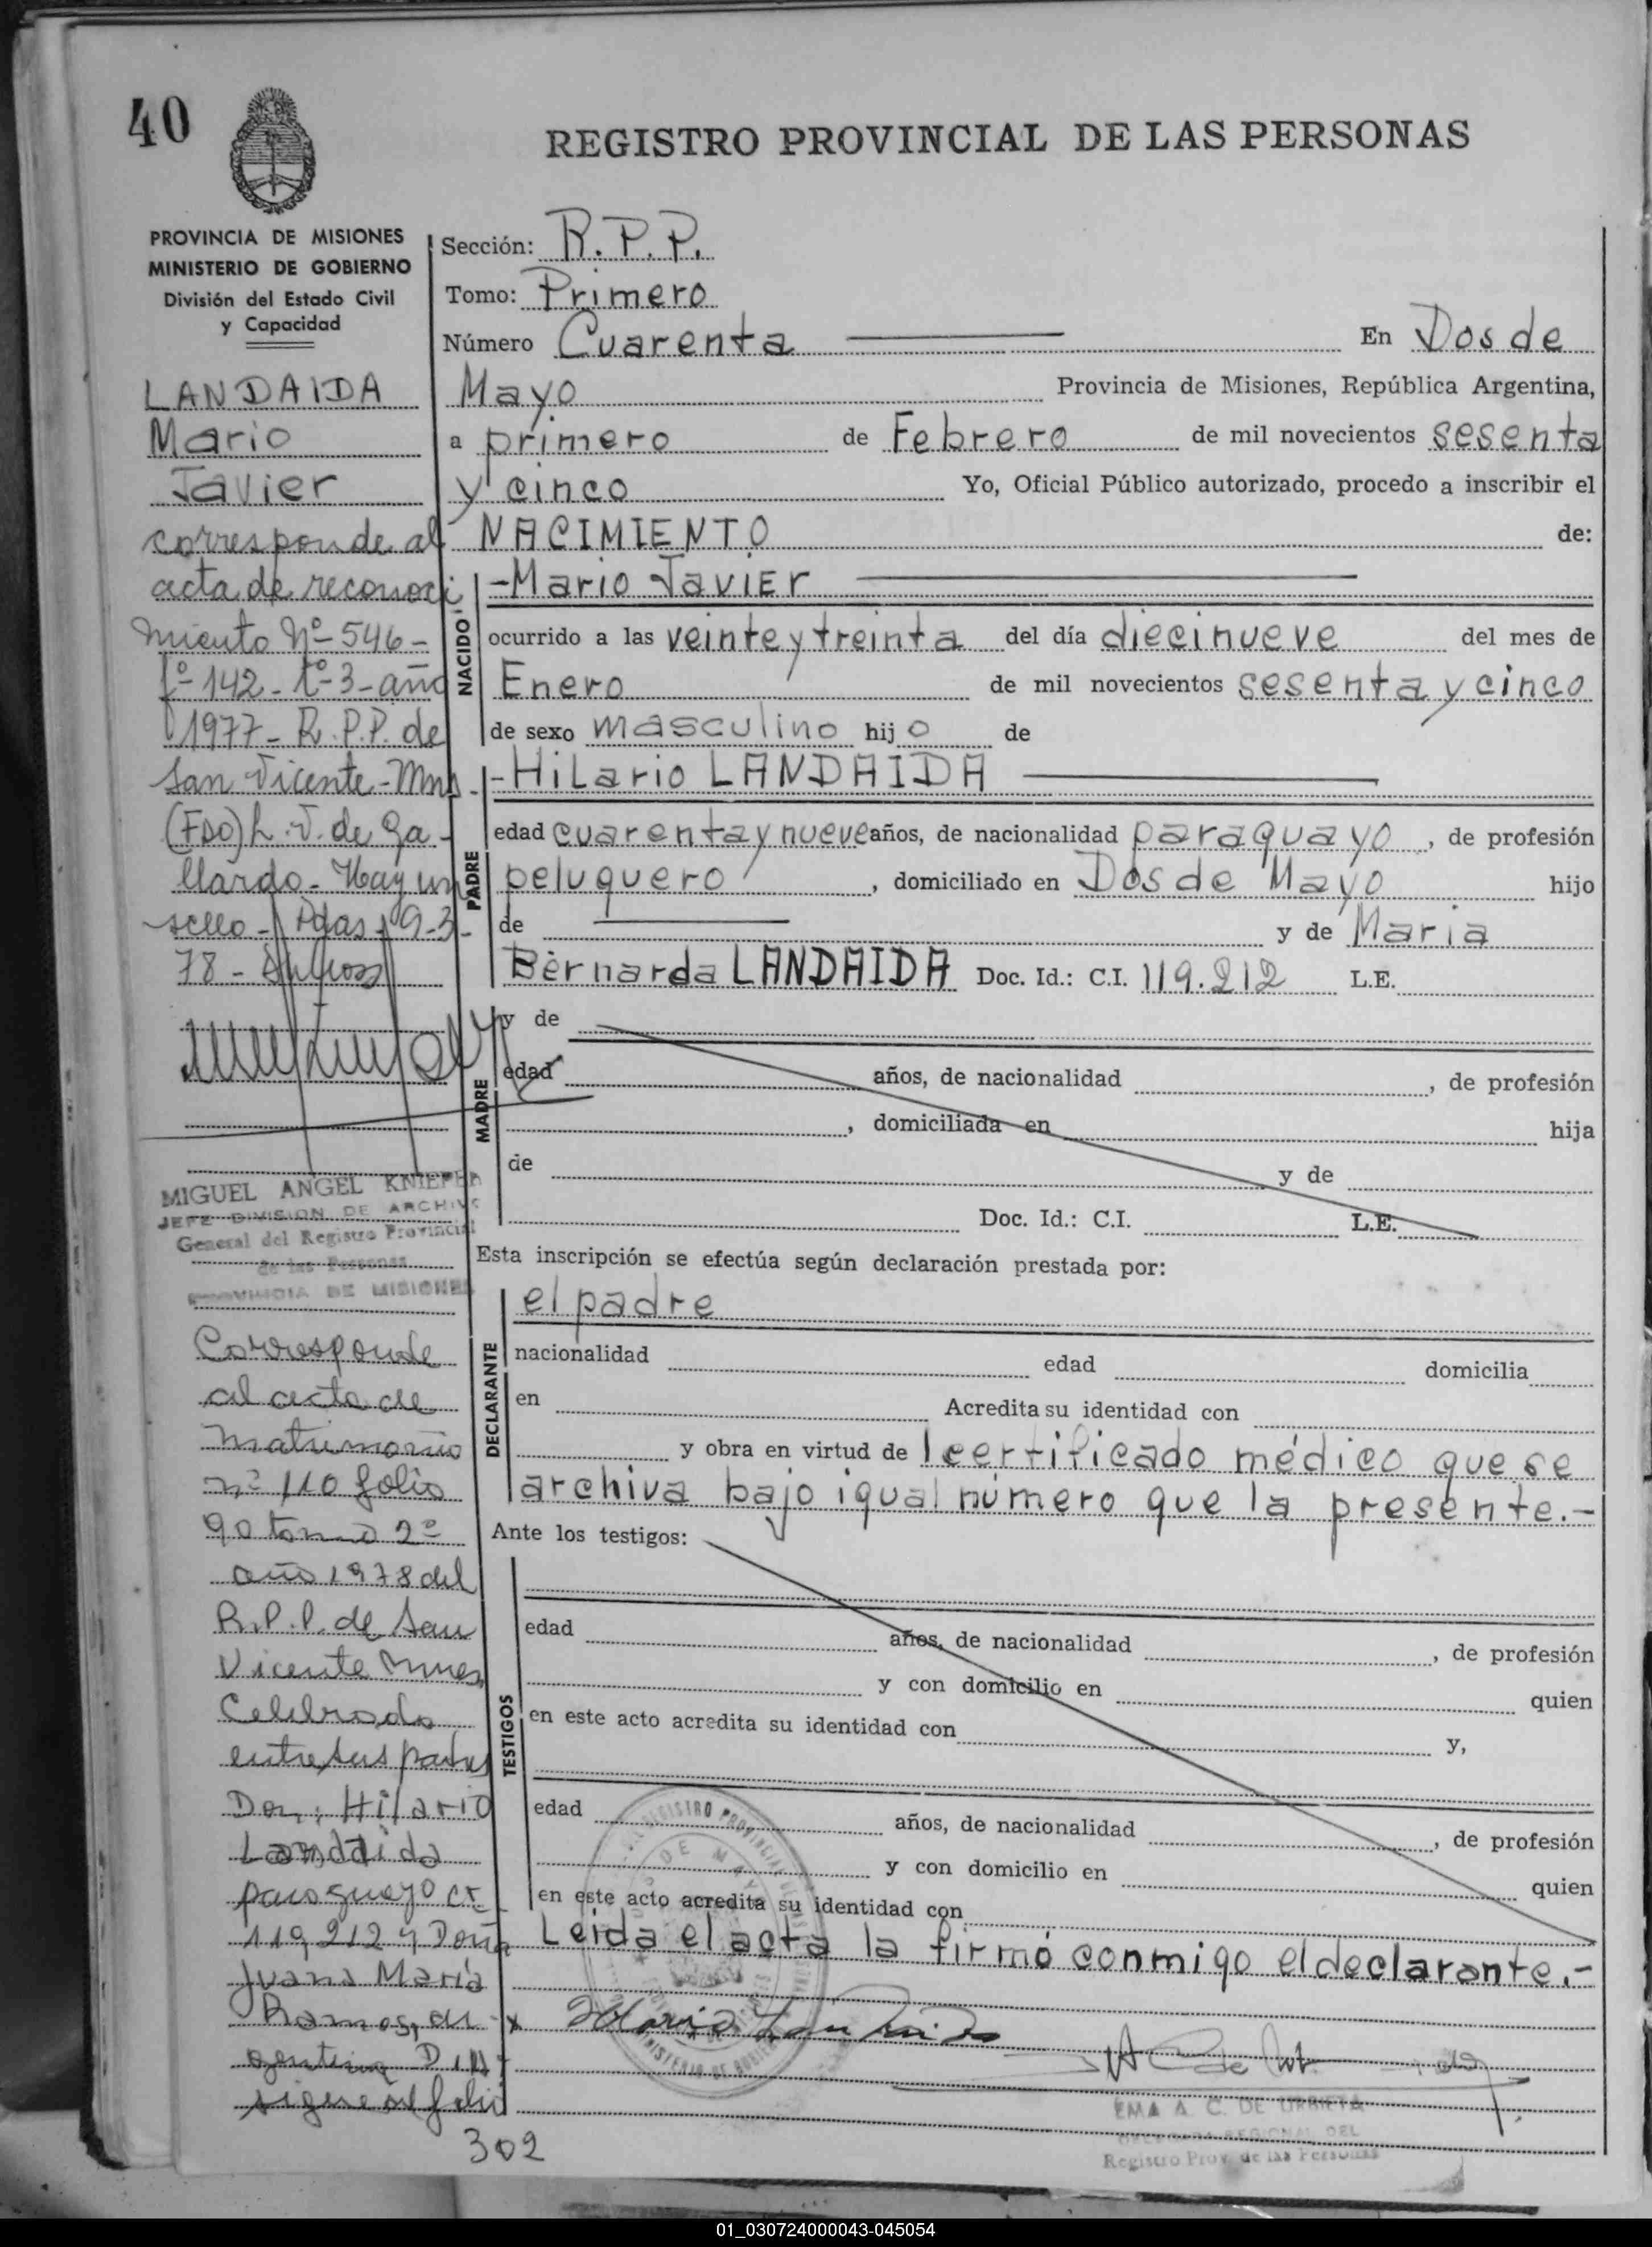 40
REGISTRO PROVINCIAL DE LAS PERSONAS
PROVINCIA DE MISIONES
MINISTERIO DE GOBIERNO
División del Estado Civil
y Capacidad
LANDAIDA
Mario
Javier
corresponde al
acta de reconoci
miento Nº 546-
fº 142- tº 3- año
1977- R.P.P. de
San Vicente- Mns.
(Fdo) L.V. de Ga-
llardo- Hay un
sello- Pdas- 9-3-
78-
MIGUEL ANGEL KNIEPER
JEFE DIVISION DE ARCHIVO
General del Registro Provincial
de las Personas
PROVINCIA DE MISIONES
Corresponde
al acta de
matrimonio
nº 110 folio
90 tomo 2º
año 1978 del
R.P.P. de San
Vicente Mnes
Celebrado
entre sus padres
Don: Hilario
Landaida
paraguayo CI
119,212 y Doña
Juana María
Ramos, ar-
gentina D.N.I
sigue al folio
302
Sección: R.P.P.
Tomo: Primero
Número Cuarenta En Dos de
Mayo Provincia de Misiones, República Argentina,
a primero de Febrero de mil novecientos sesenta
y cinco Yo, Oficial Público autorizado, procedo a inscribir el
NACIMIENTO de:
NACIDO
-Mario Javier
ocurrido a las veinte y treinta del día diecinueve del mes de
Enero de mil novecientos sesenta y cinco
de sexo masculino hijo de
PADRE
-Hilario LANDAIDA
edad cuarenta y nueve años, de nacionalidad paraguayo, de profesión
peluquero, domiciliado en Dos de Mayo hijo
de y de Maria
Bernarda LANDAIDA Doc. Id.: C.I. 119.212 L.E.
MADRE
y de
edad años, de nacionalidad , de profesión
, domiciliada en hija
de y de
Doc. Id.: C.I. L.E.
Esta inscripción se efectúa según declaración prestada por:
DECLARANTE
el padre
nacionalidad edad domicilia
en Acredita su identidad con
y obra en virtud de l certificado médico que se
archiva bajo igual número que la presente.-
Ante los testigos:
TESTIGOS
edad años, de nacionalidad , de profesión
y con domicilio en quien
en este acto acredita su identidad con y,
edad años, de nacionalidad , de profesión
y con domicilio en quien
en este acto acredita su identidad con
Leida el acta la firmó conmigo el declarante.-
x
EMA A. C. DE URRIETA
DELEGADA REGIONAL DEL
Registro Prov. de las Personas
01_030724000043-045054